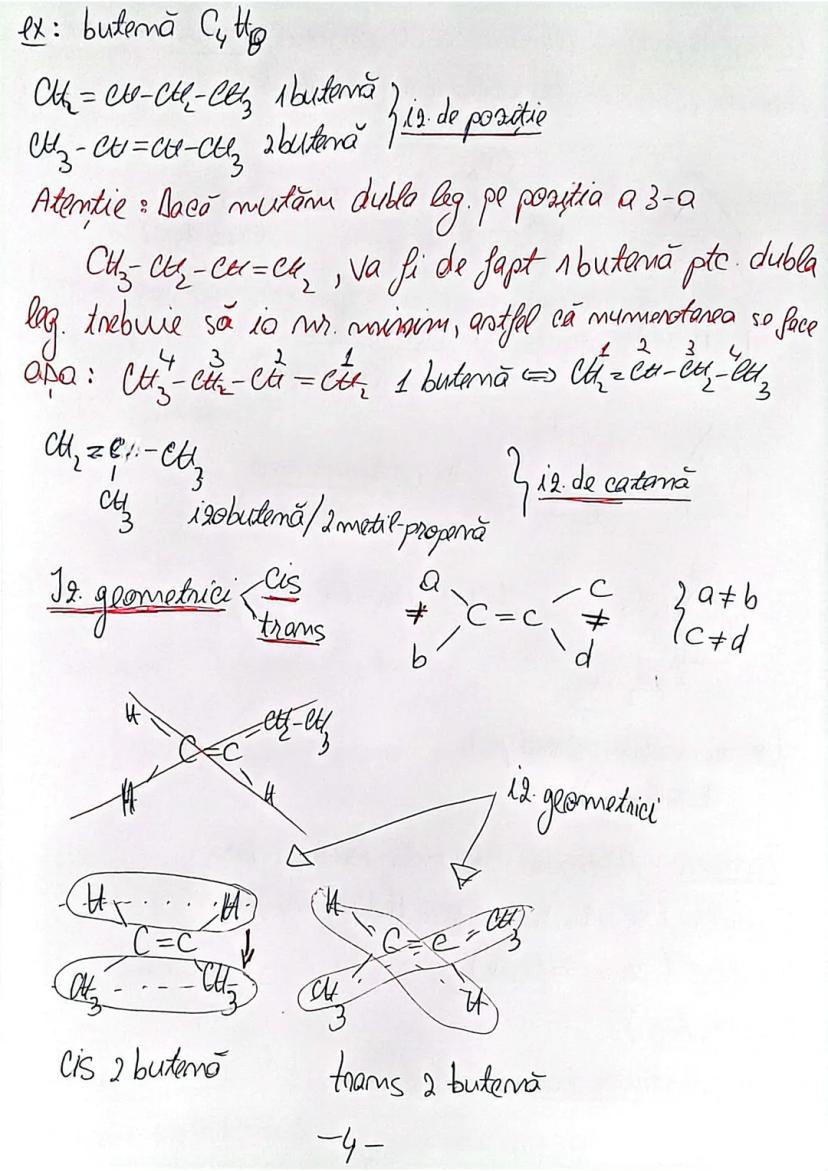 ex: butenă C₄H₈
CH₂ = CH-CH₂-CH₃ 1butenă
CH₃ - CH =CH-CH₃ 2butenă
iz. de poziție
Atenție : Dacă mutăm dubla leg. pe poziția a 3-a
CH₃- CH₂ -CH =CH₂ , va fi de fapt 1butenă ptc. dubla
leg. trebuie să ia nr. minim, astfel că numerotarea se face
4 3 2 1 1 2 3 4
așa : CH₃-CH₂-CH = CH₂ 1 butenă ⇔ CH₂=CH-CH₂-CH₃
CH₂ =C -CH₃
|
CH₃
izobutenă/2metil-propenă
iz. de catenă
Iz. geometrici cis
trans
a c
≠ C = C ≠
b d
a ≠ b
c ≠ d
H CH₂-CH₃
C=C
H H
iz. geometrici
H H
C=C
CH₃ CH₃
cis 2 butenă
H CH₃
C=C
CH₃ H
trans 2 butenă
-4-